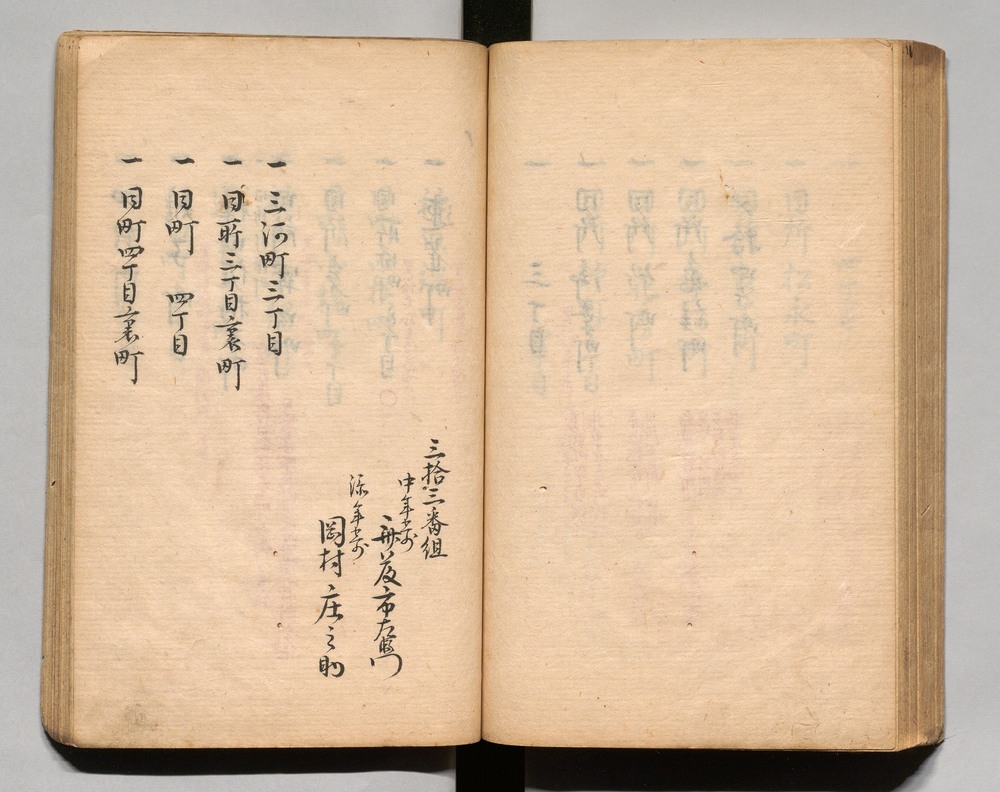 一 三河町三丁目
一 同所三丁目裏町
一 同町 四丁目
一 同町四丁目裏町
三拾三番組
中年寄
市左衛門
添年寄
岡村庄之助